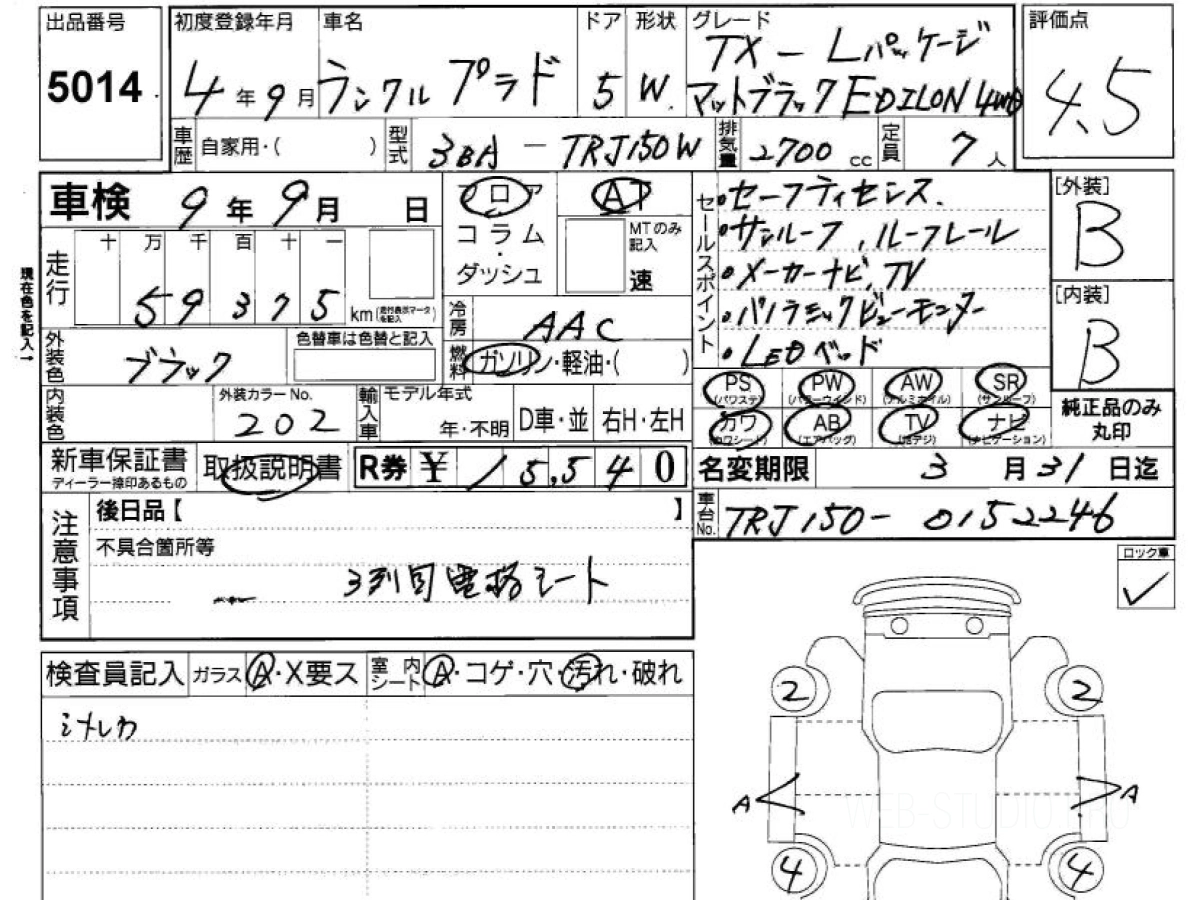 出品番号
5014
初度登録年月
4年9月
車名
ランクルプラド
ドア
5
形状
W.
グレード
TX-Lパッケージ
マットブラックEDILON 4WD
評価点
4.5
車歴
自家用・( )
型式
3BA-TRJ150W
排気量
2700 cc
定員
7人
車検
9年9月 日
フロア
コラム
・
ダッシュ
AT
MTのみ記入
速
セールスポイント
・セーフティセンス.
・サンルーフ,ルーフレール
・メーカーナビ,TV
・パノラミックビューモニター
・LEDヘッド
[外装]
B
[内装]
B
現在色を記入→
走行
十 万 千 百 十 一
59375
km
(走行表示マークを記入)
冷房
AAC
燃料
ガソリン・軽油・( )
外装色
ブラック
色替車は色替と記入
PS
(パワステ)
PW
(パワーウインド)
AW
(アルミホイル)
SR
(サンルーフ)
カワ
(カワシート)
AB
(エアバッグ)
TV
(地デジ)
ナビ
(ナビゲーション)
純正品のみ
丸印
内装色
外装カラーNo.
202
輸入車
モデル年式
年・不明
D車・並
右H・左H
新車保証書
ディーラー捺印あるもの
取扱説明書
R券
¥15,540
名変期限
3月31日迄
注意事項
後日品【 】
不具合箇所等
3列目電格シート
車台No.
TRJ150-0152246
ロック車
✓
検査員記入
ガラス
A・X要ス
室内シート
A・コゲ・穴・汚れ・破れ
シメレカ
2
2
A
A
4
4
WEB-STUDIO.PRO